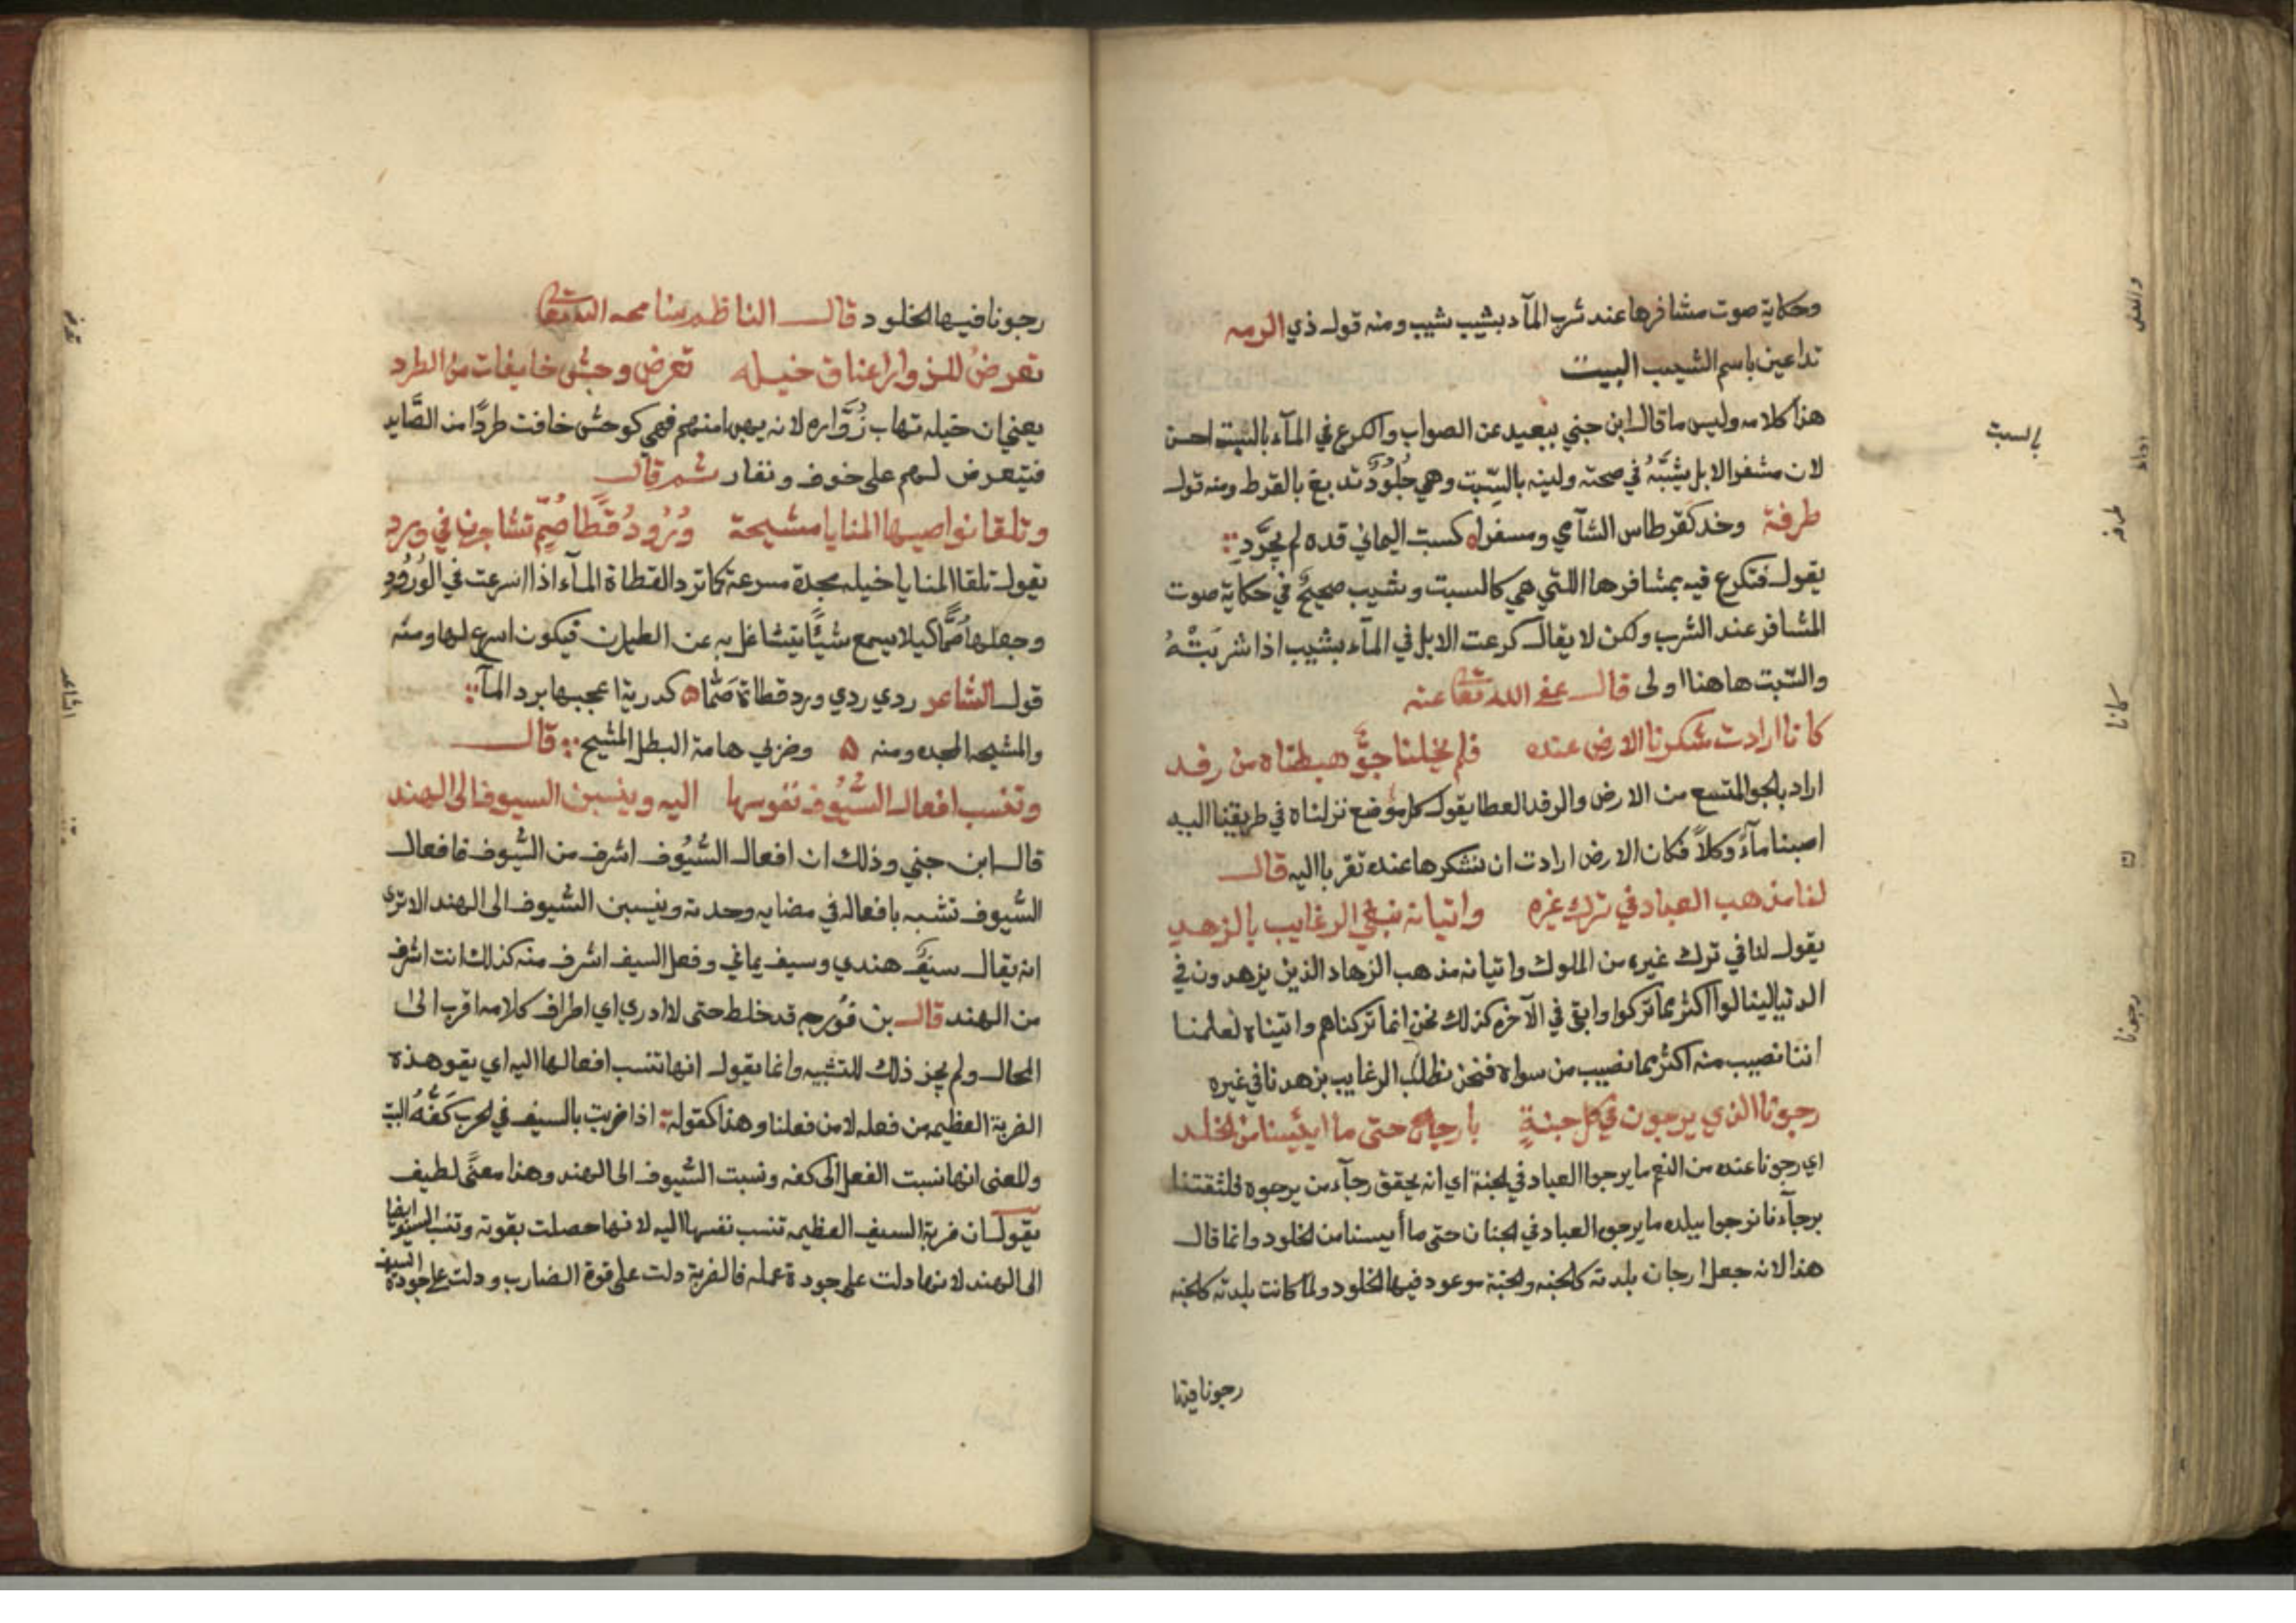 وحكاية صوت مشافرها عند شرب المآء بشيب شيب ومنه قول ذي الرمه
تداعين باسم الشيب البيت
هذا كلامه وليس ما قال ابن جني ببعيد عن الصواب والكرع في المآء بالسبت احسن
لان مشفر الابل يشبّهُ في صحته ولينه بالسِّبت وهي جلُودٌ تدبغ بالقرط ومنه قول
طرفة وخد كقرطاس الشآمي ومسفراه كسبت اليماني قده لم يجرَّدِ
يقول فتكرع فيه بمشافرها اللتي هي كالسبت وشيب صحيحٌ في حكاية صوت
المشافر عند الشرب ولكن لا يقال كرعت الابل في المآء بشيب اذا شربَتْهُ
والسّبت هاهنا اولى قال عفى الله تعا عنه
كانا ارادت شكرنا الارض عنده فلم يخلنا جوٌّ هبطناه من رفد
اراد بالجو المتسع من الارض والرفد العطا يقول كل موضع نزلناه في طريقنا اليه
اصبنا مآءً وكلاً فكان الارض ارادت ان نشكرها عنده تقربا اليه قال
لنا مذهب العباد في ترك غيره واتيانه نبغي الرغايب بالزهد
يقول لنا في ترك غيره من الملوك واتيانه مذهب الزهاد الذين يزهدون في
الدنيا لينالوا اكثر مما تركوا وابقى في الآخره كذلك نحن انما تركناهم واتيناه لعلمنا
اننا نصيب منه اكثر مما نصيب من سواه فنحن نطلب الرغايب بزهدنا في غيره
رجونا الذي يرجون في كل جنةٍ بارجان حتى ما ايئسنا من الخلد
اي رجونا عنده من النعم ما يرجوا العباد في الجنة اي انه يحقق رجآء من يرجوه فلثقتنا
برجآءنا نرجوا ببلده ما يرجوه العباد في الجنان حتى ما أيسنا من الخلود وانما قال
هذا لانه جعل ارجان بلدته كالجنه والجنة موعود فيها الخلود ولما كانت بلدته كالجنه
رجونا فيها
بالسبت
طرفة
كانا
رجونا
رجونا فيها الخلود قال الناظم سامحه الله تعا
تعرضُ للزوار اعناق خيله تعرض وحشٍ خايفات من الطرد
يعني ان خيله تهاب زُوَّاره لانه يهبها منهم فهي كوحش خافت طردًا من الصَّايد
فتتعرض لهم على خوف ونفار ثم قال
وتلقا نواصيها المنايا مشيحة وُرُودُ قَطًا صُمّ تشاجرن في ورد
يقول تلقا المنايا خيله مجدة مسرعة كما ترد القطاة المآء اذا اسرعت في الوُرُود
وجعلها صُمًّا كيلا يسمع شيًّا يتشاغل به عن الطيران فيكون اسرع لها ومنه
قول الشاعر ردي ردي ورد قطاة صَمّا ه كدرية اعجبها برد المآ
والمشيحه المجده ومنه ه وضربي هامة البطل المشيح قال
وتنسب افعال السُّيُوف نفوسها اليه وينسبن السيوف الى الهند
قال ابن جني وذلك ان افعال السُّيُوف اشرف من السُّيوف فافعال
السُّيوف تشبه بافعاله في مضايه وحدته وينسبن السُّيوف الى الهند الا ترى
انه يقال سيفٌ هندي وسيف يماني وفعل السيف اشرف منه كذلك انت اشرف
من الهند قال بن فُورجه قد خلط حتى لا ادري اي اطراف كلامه اقرب الى
المحال ولم يجز ذلك للتشبيه وانما يقول انها تنسب افعالها اليه اي يقو هذه
الضربة العظيمه من فعله لا من فعلنا وهذا كقوله اذا ضربت بالسيف في الحرب كَفُّهُ البيت
والمعنى انها نسبت الفعل الى كفه ونسبت السُّيوف الى الهند وهذا معنًى لطيف
يقول ان ضربة السيف العظيمه تنسب نفسها اليه لانها حصلت بقوته وتنسب السيوف ايضا
الى الهند لانها دلت على جودة عمله فالضربة دلت على قوة الضارب ودلت على جودة السيف
الشاعر